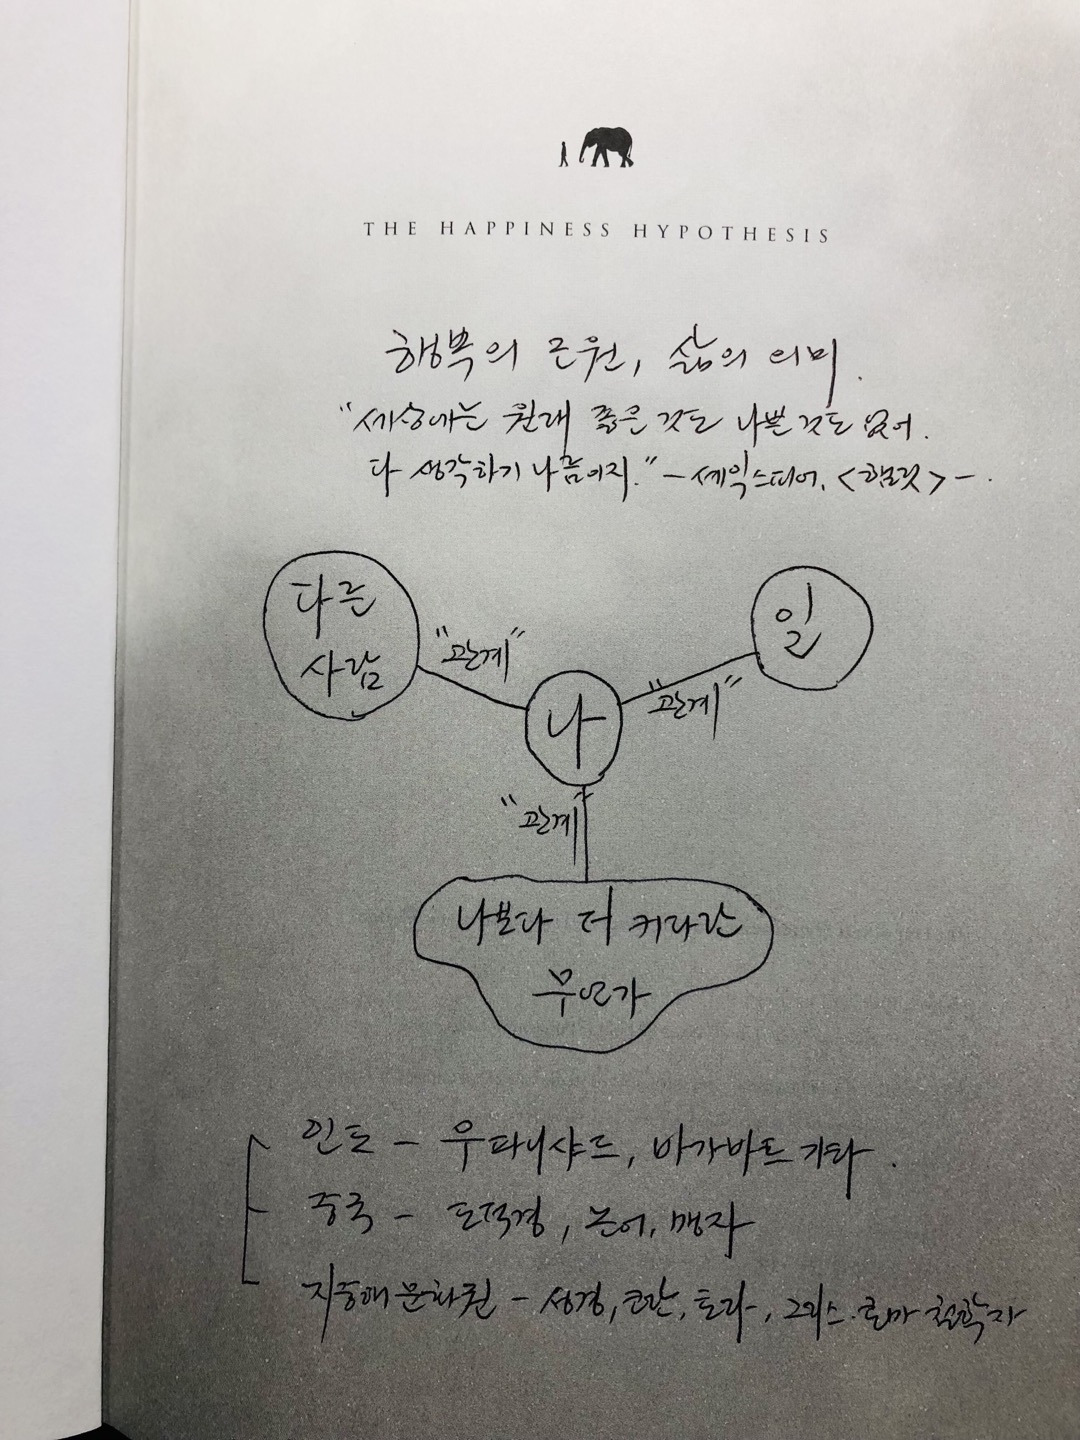 THE HAPPINESS HYPOTHESIS
행복의 근원, 삶의 의미.
"세상에는 원래 좋은 것도 나쁜 것도 없어.
다 생각하기 나름이지." - 셰익스피어, <햄릿> -.
다른
사람
"관계"
일
"관계"
나
"관계"
나보다 더 커다란
무언가
인도 - 우파니샤드, 바가바드 기타.
중국 - 도덕경, 논어, 맹자
지중해 문화권 - 성경, 코란, 토라, 그리스·로마 철학자